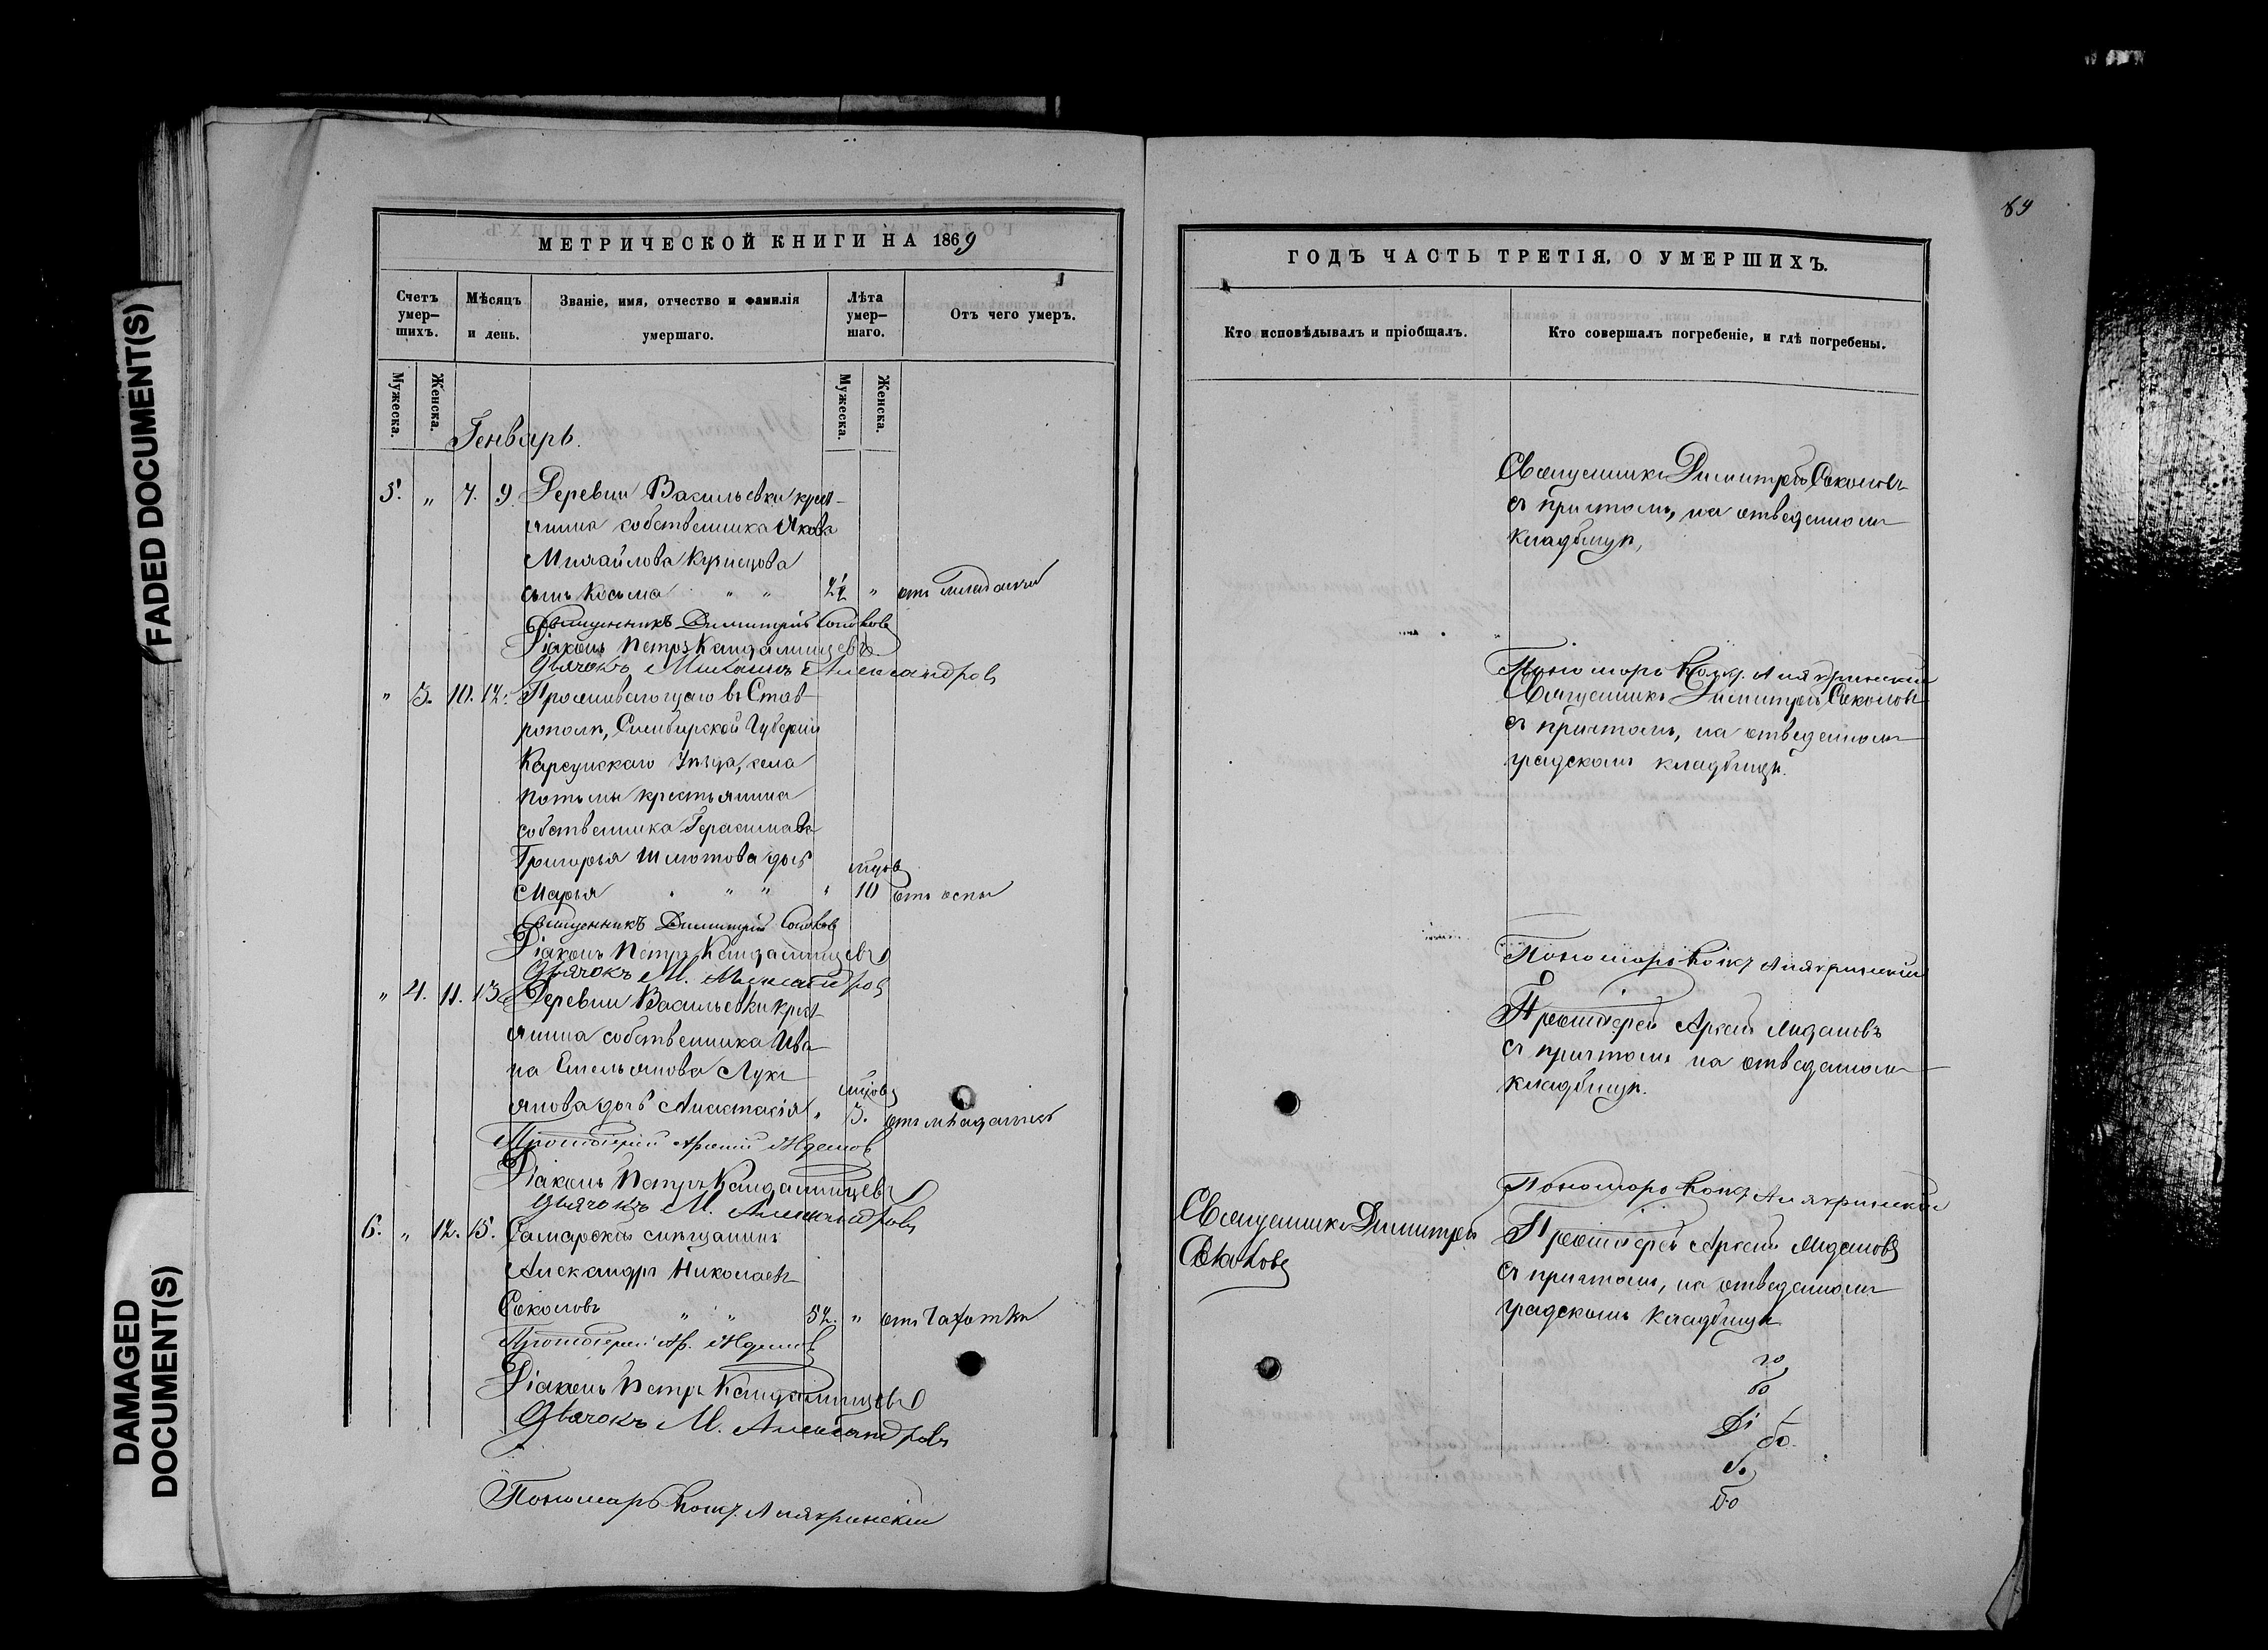 FADED DOCUMENT(S)
DAMAGED
DOCUMENT(S)
МЕТРИЧЕСКОЙ КНИГИ НА 1869
Счетъ умер-шихъ.
Мѣсяцъ и день.
Званіе, имя, отчество и фамилія умершаго.
Лѣта умер-шаго.
Отъ чего умеръ.
Мужеска.
Женска.
Мужеска.
Женска.
Генварь.
5. „ 7. 9. Деревни Васильевки крест-
янина собственника Якова
Михайлова Кузнецова
сынъ Косьма „ „ 2½ „ отъ
Священникъ Димитрій Соколовъ
Діаконъ Петръ Кандалинцевъ
Дьячокъ Михаилъ Александровъ
„ 3. 10. 12. Проживающаго въ Став-
рополѣ, Симбирской Губерніи
Карсунскаго Уѣзда, села
Потьмы крестьянина
собственника Герасима
Григорья дочь
мцовъ
Марья „ „ „ 10 отъ оспы
Священникъ Димитрій Соколовъ
Діаконъ Петръ Кандалинцевъ
Дьячокъ М. Александровъ
„ 4. 11. 13. Деревни Васильевки крест-
янина собственника Ива-
на Емельянова Лукь-
мцовъ
янова дочь Анастасія „ 3. отъ
Протоіерей
Діаконъ Петръ Кандалинцевъ
Дьячокъ М. Александровъ
6. „ 12. 15. Самарскій мѣщанинъ
Александръ Николаевъ
Соколовъ „ „ 52. „ отъ чахотки
Протоіерей Ар.
Діаконъ Петръ Кандалинцевъ
Дьячокъ М. Александровъ
Пономарь
89
ГОДЪ ЧАСТЬ ТРЕТІЯ, О УМЕРШИХЪ.
Кто исповѣдывалъ и пріобщалъ.
Кто совершалъ погребеніе, и гдѣ погребены.
Священникъ Димитрій Соколовъ
съ причтомъ, на отведенномъ
кладбищѣ,
Пономарь
Священникъ Димитрій Соколовъ
съ причтомъ, на отведенномъ
градскомъ кладбищѣ.
Пономарь
Протоіерей
съ причтомъ на отведенномъ
кладбищѣ.
Пономарь
Священникъ Димитрій
Соколовъ
Протоіерей
съ причтомъ, на отведенномъ
градскомъ кладбищѣ